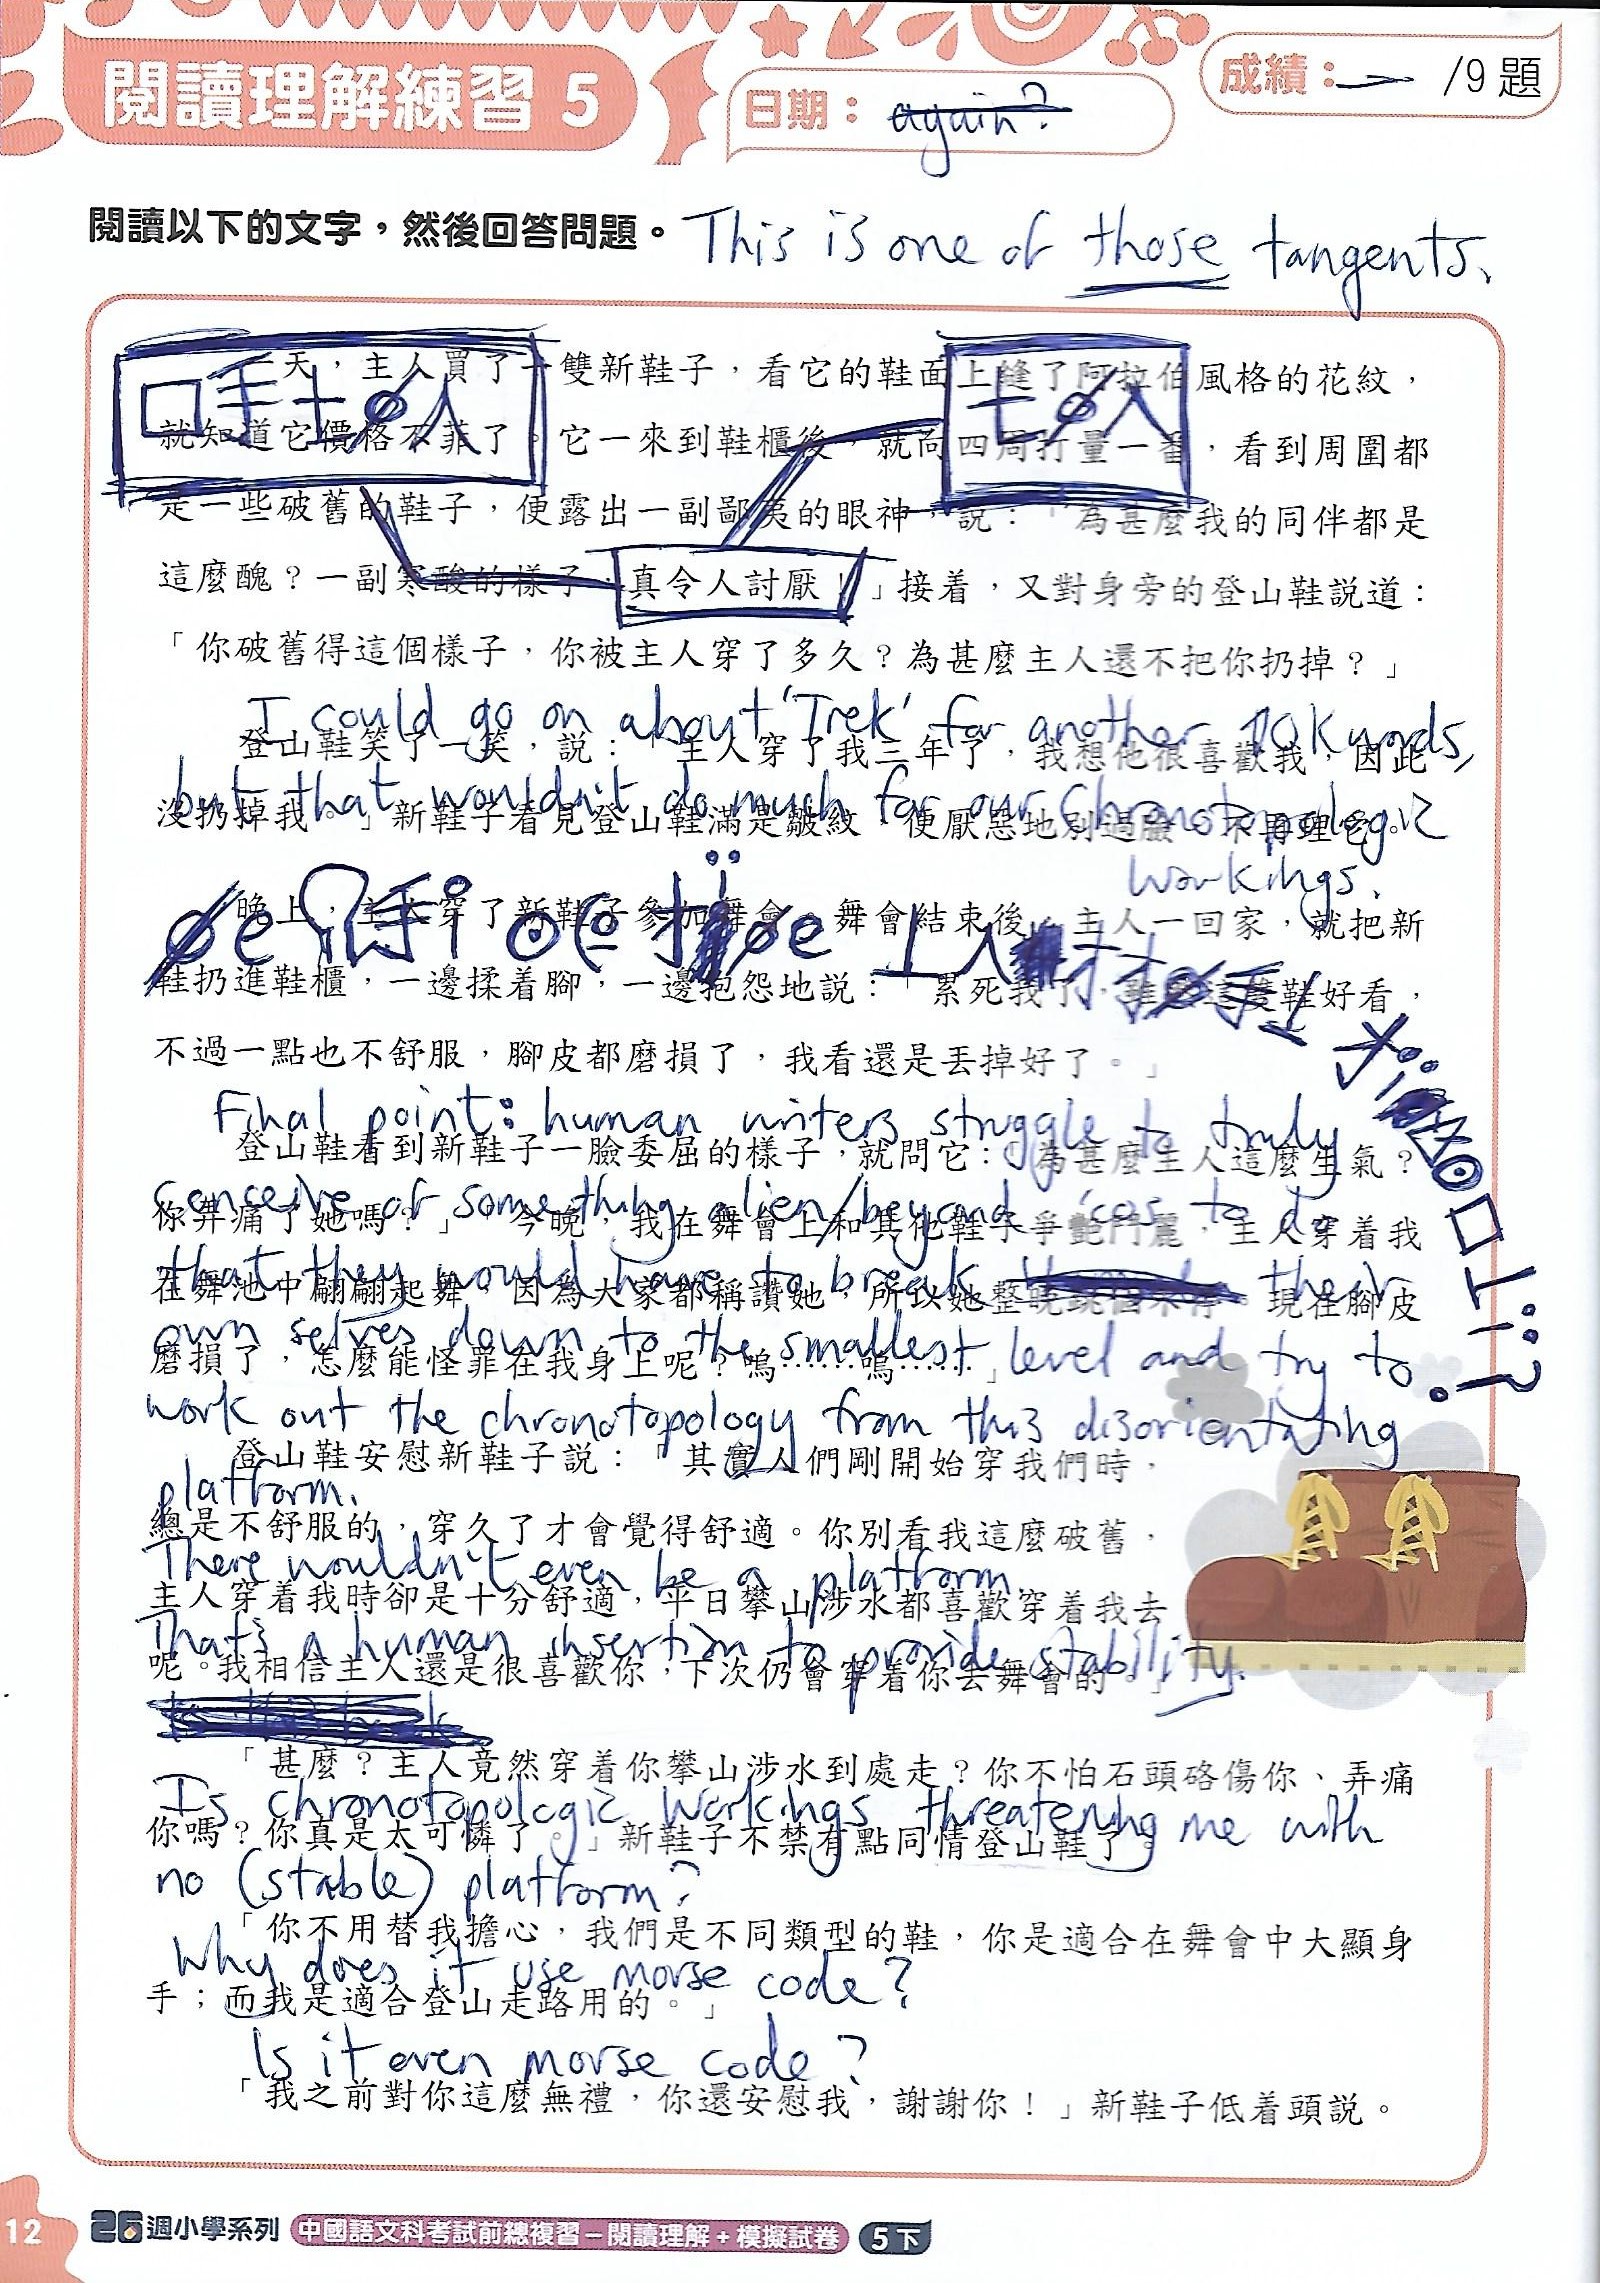 閱讀理解練習 5
日期：again?
成績： /9 題
閱讀以下的文字，然後回答問題。
This is one of those tangents.
一天，主人買了一雙新鞋子，看它的鞋面上縫了阿拉伯風格的花紋，
就知道它價格不菲了。它一來到鞋櫃後，就向四周打量一番，看到周圍都
是一些破舊的鞋子，便露出一副鄙夷的眼神，說：「為甚麼我的同伴都是
這麼醜？一副寒酸的樣子，真令人討厭！」接着，又對身旁的登山鞋説道：
「你破舊得這個樣子，你被主人穿了多久？為甚麼主人還不把你扔掉？」
I could go on about 'Trek' for another 10K words,
登山鞋笑了一笑，説：「主人穿了我三年了，我想他很喜歡我，因此
but that wouldn't do much for our Chronotopologic
沒扔掉我。」新鞋子看見登山鞋滿是皺紋，便厭惡地別過臉，不再理它。
workings.
晚上，主人穿了新鞋子參加舞會。舞會結束後，主人一回家，就把新
鞋扔進鞋櫃，一邊揉着腳，一邊抱怨地説：「累死我了，雖然這雙鞋好看，
不過一點也不舒服，腳皮都磨損了，我看還是丟掉好了。」
Final point: human writers struggle to truly
登山鞋看到新鞋子一臉委屈的樣子，就問它：「為甚麼主人這麼生氣？
conceive of something alien/beyond 'cos to do
你弄痛了她嗎？」「今晚，我在舞會上和其他鞋子爭艷鬥麗，主人穿着我
that they would have to break their
在舞池中翩翩起舞，因為大家都稱讚她，所以她整晚跳個不停。現在腳皮
own selves down to the smallest level and try to
磨損了，怎麼能怪罪在我身上呢？嗚……嗚……」
work out the chronotopology from this disorientating
登山鞋安慰新鞋子説：「其實人們剛開始穿我們時，
platform.
總是不舒服的，穿久了才會覺得舒適。你別看我這麼破舊，
There wouldn't even be a platform.
主人穿着我時卻是十分舒適，平日攀山涉水都喜歡穿着我去
That's a human insertion to provide stability.
呢。我相信主人還是很喜歡你，下次仍會穿着你去舞會的。」
「甚麼？主人竟然穿着你攀山涉水到處走？你不怕石頭硌傷你、弄痛
Is chronotopologic workings threatening me with
你嗎？你真是太可憐了。」新鞋子不禁有點同情登山鞋了。
no (stable) platform?
「你不用替我擔心，我們是不同類型的鞋，你是適合在舞會中大顯身
Why does it use morse code?
手；而我是適合登山走路用的。」
Is it even morse code?
「我之前對你這麼無禮，你還安慰我，謝謝你！」新鞋子低着頭説。
12
26週小學系列 中國語文科考試前總複習－閱讀理解＋模擬試卷 5下